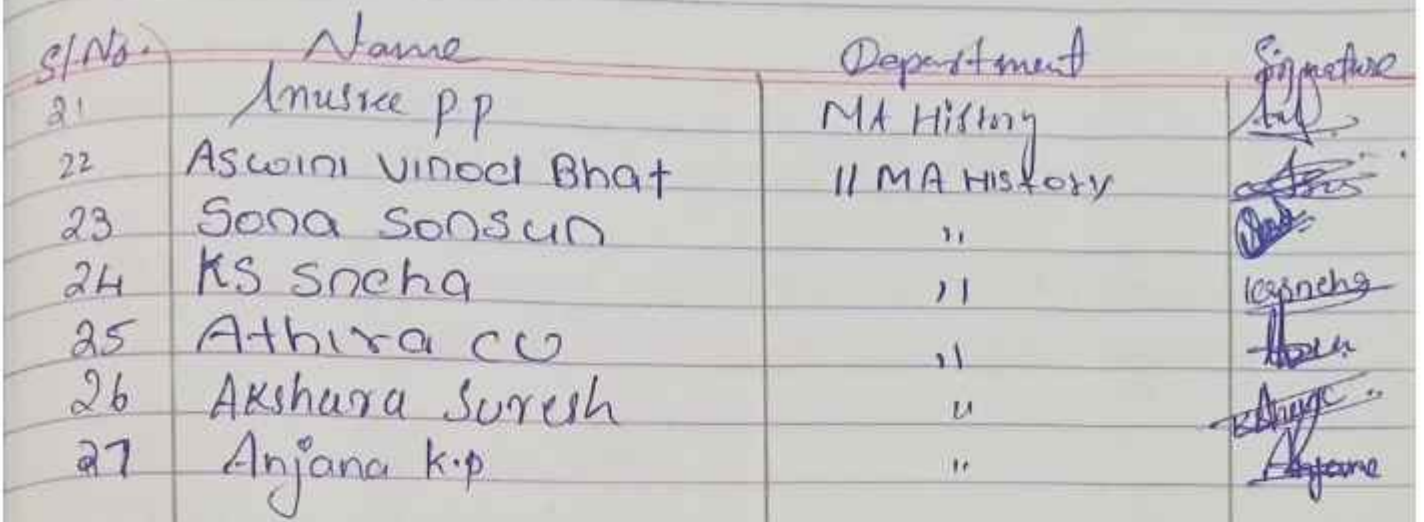 Sl No. Name Department Signature
21 Anusree P P MA History
22 Aswini Vinod Bhat II MA History
23 Sona Sonsun "
24 KS Sneha " kssneha
25 Athira CU "
26 Akshara Suresh "
27 Anjana K.P " Anjana